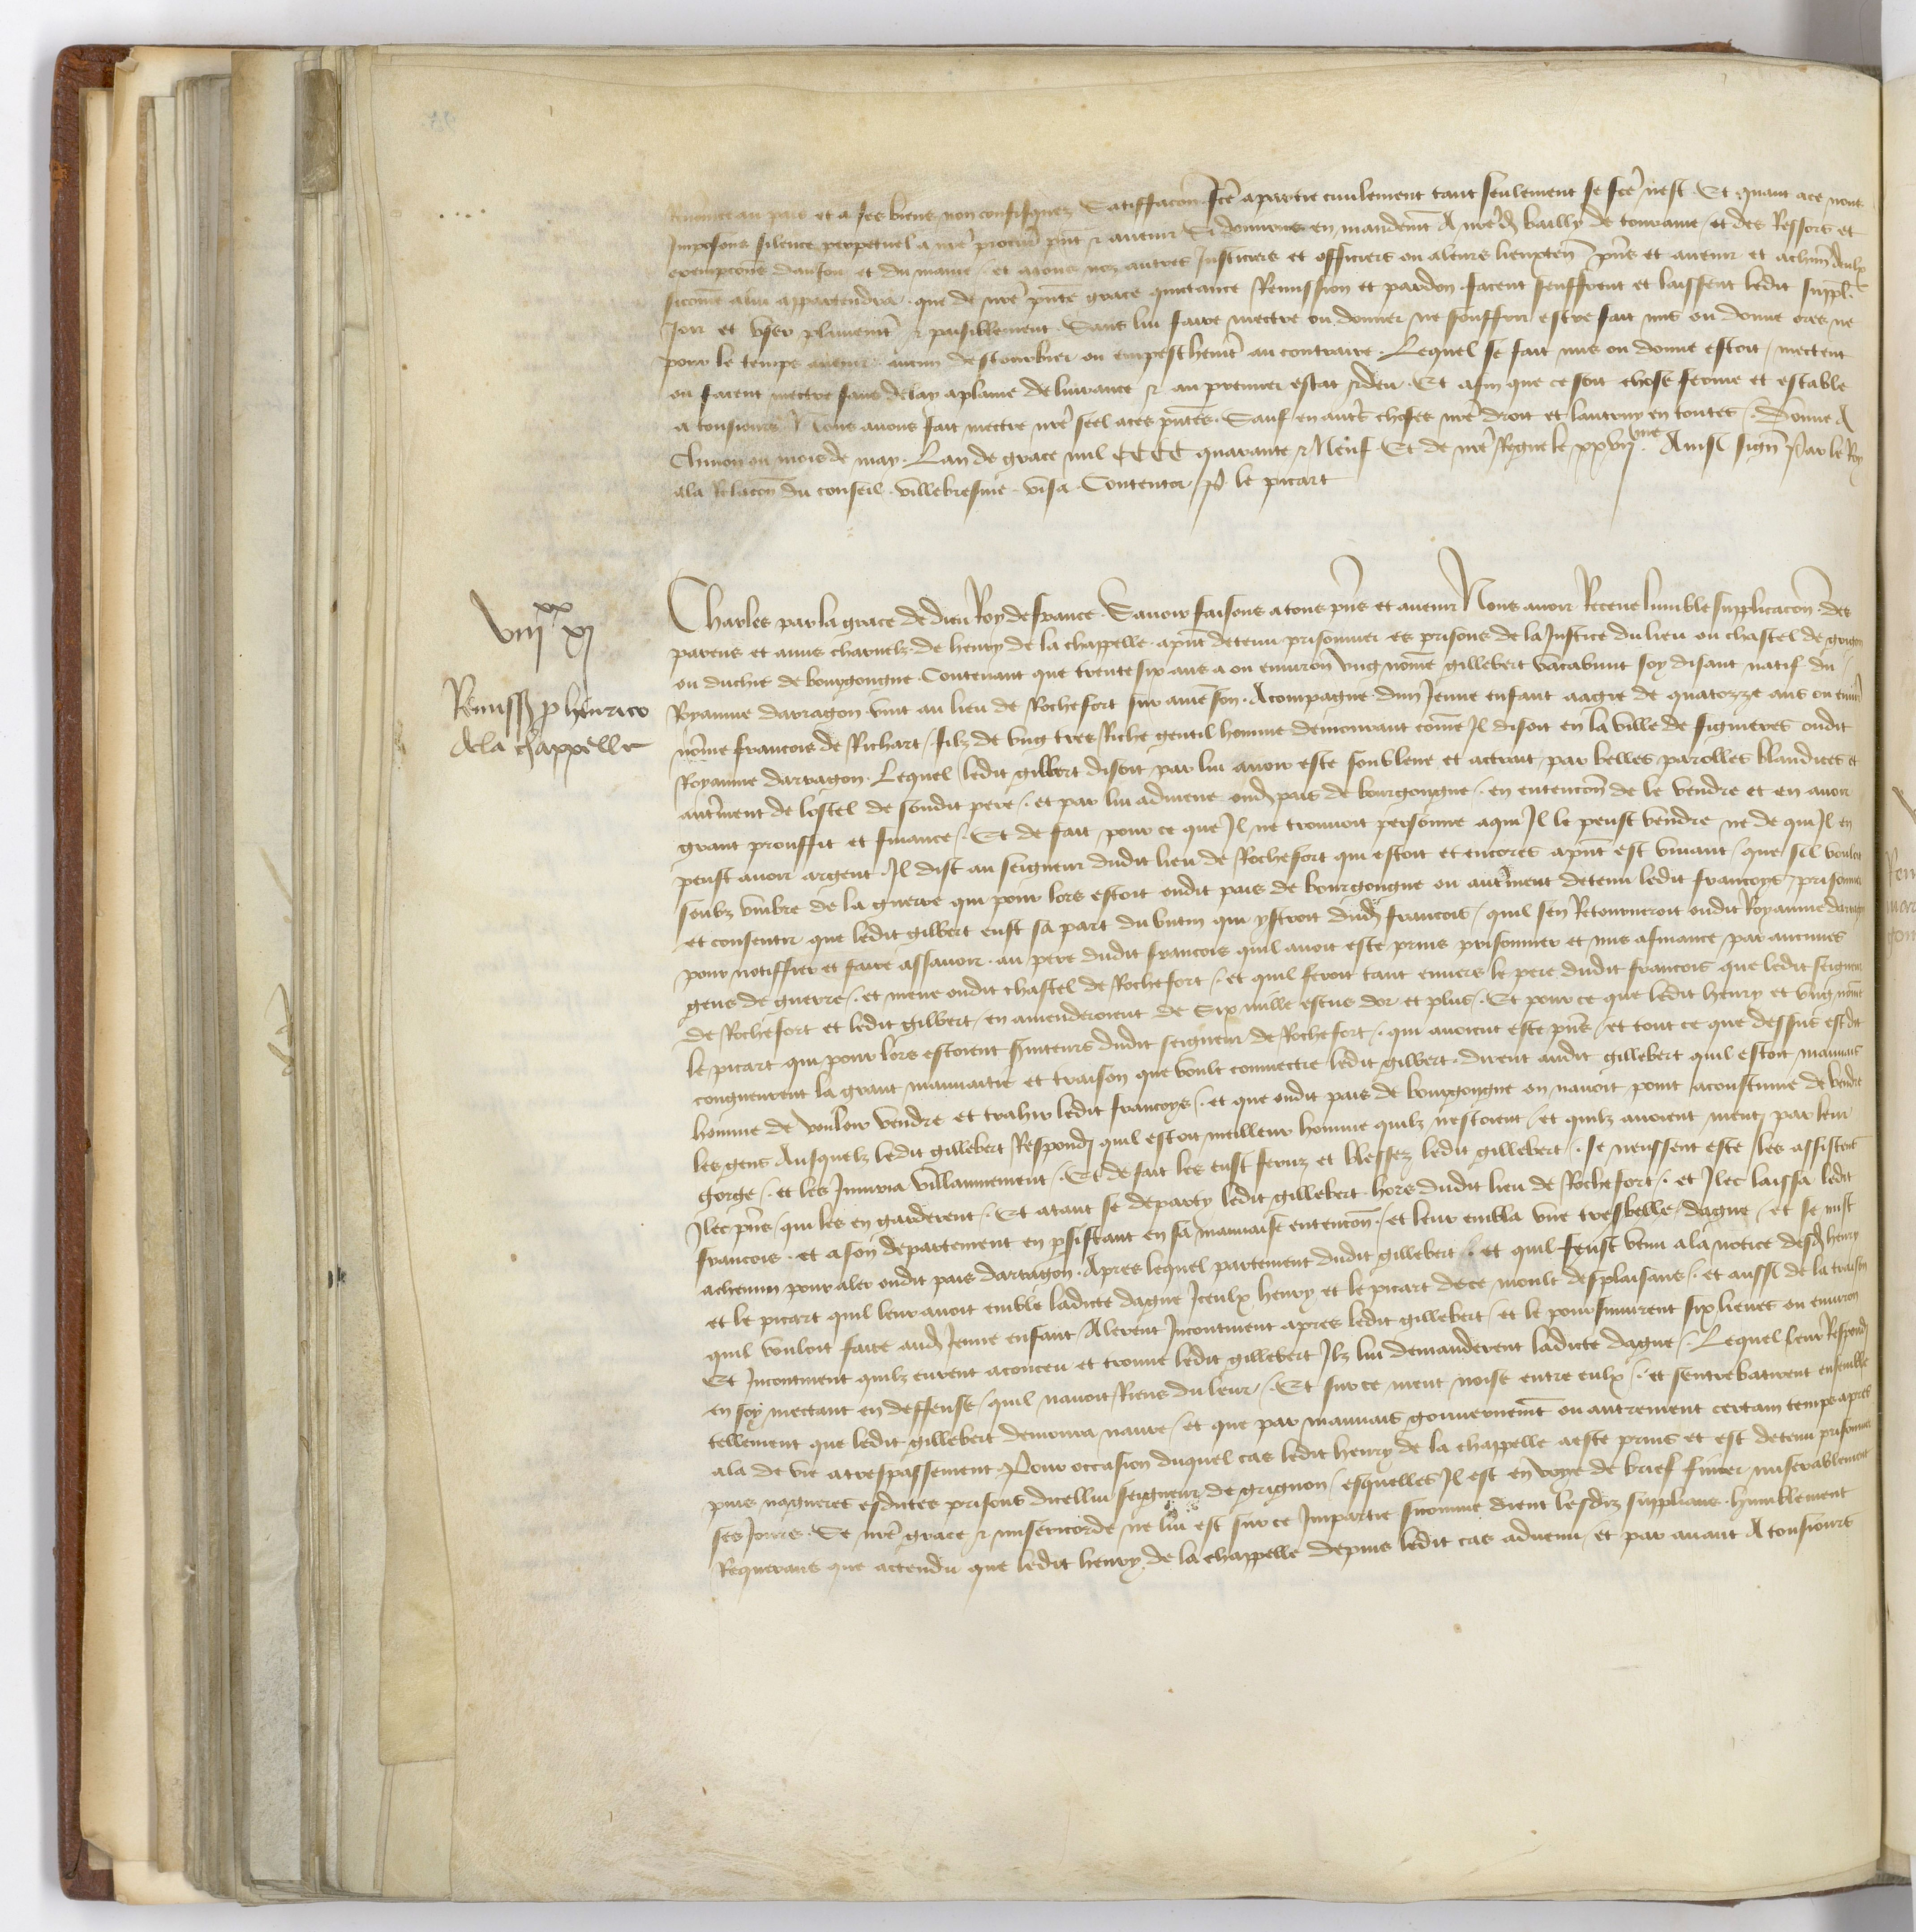 Renomee au pais et a ses biens non confisquez Satisffacion fcē apartie ciuilement tant seulement se fcē nest. Et quant ace nous
Imposons silence perpetuel a nrē procur̄ pn̄t & auenir Si donnons en mandemt̄ A nrēd bailly de touraine et des Ressors et
exempcons daniou et du maine / et atous noz autres Justiciers et officiers ou aleurs lieuxten̄ pn̄s et auenir et achun̄ deulx
sicom̄e alui appartendra. que de nrē pn̄te grace quictance Remission et pardon facent seuffrent et laissent ledit suppl.
Joir et vser plainemt̄ & paisiblement. Sans lui faire mectre ou donner ne souffrir estre fait mis ou donne ores ne
pour le temps auenir. aucun destourbier ou empeschemt̄ au contraire. Lequel se fait mis ou donne estoit / mectent
ou facent mectre sans delay aplaine deliurance & au premier estat & deu. Et afin que ce soit chose ferme et estable
a tousiours Nous auons fait mectre nrē seel aces pn̄tes. Sauf en autrs choses nrē droit et lautruy en toutes /. Donne A
Chinon ou mois de may. Lan de grace mil CCCC quarante & Neuf Et de nrē Regne le xxvij.me Ainsi sign̄ Par le Roy
ala Relacōn du conseil. villebresme. visa. Contentor. / P. le picart
viijxx xj
Remissio pro henrico
dela chappelle
Charles par la grace de dieu Roy de france. Sauoir faisons atous pn̄s et auenir Nous auoir Receue lumble supplicacōn des
parens et amis charnelz de henry de la chappelle. apn̄t detenu prisonnier es prisons de la Justice du lieu ou chastel de grignon
ou duchie de bourgongne. Contenant que trente six ans a ou enuiron vng nom̄e gillebert vacabunt soy disant natif du
Royaume darragon vint au lieu de Rochefort sur amenson. Acompaigne dun Jeune enfant aagie de quatorze ans ou enuir̄
nom̄e francois de Richart / filz de vng tres Riche gentil homme demourant com̄e Il disoit en la ville de figuieres oudit
Royaume darragon. Lequel ledit gilbert disoit par lui auoir este soubleue et actrait par belles parolles blandices et
autrēment de lostel de sondit pere /. et par lui admene oud pais de bourgongne /. en entencōn de le vendre et en auoir
grant prouffit et finance /. Et de fait pour ce que Il ne trouuoit personne aqui Il le peust vendre ne de qui Il en
peust auoir argent Il dist au seigneur dudit lieu de Rochefort qui estoit et encores apn̄t est viuant / que sil vouloit
soubz vmbre de la guerre qui pour lors estoit oudit pais de bourgongne ou autrēment detenir ledit francoys prisonnier
et consentir que ledit gilbert eust sa part du butin qui ystroit dud francois / quil sen Retourneroit oudit Royaume darragon
pour notiffier et faire assauoir. au pere dudit francois quil auoit este prins prisonnier et mis afinance par aucunes
gens de guerre /. et mene oudit chastel de Rochefort /. et quil feroit tant enuers le pere dudit francois que ledit seigneur
de Rochefort et ledit gilbert / en amenderoient de Six mille escus dor et plus /. Et pour ce que ledit henry et vng nom̄e
le picart qui pour lors estoient seruiteurs dudit seigneur de Rochefort /. qui auoient este pn̄s / et tout ce que dessus est dit
congneurent la grant mauuaitie et traison que voult commectre ledit gilbert. dirent audit gillebert quil estoit mauuais
homme de vouloir vendre et trahir ledit francoys /. et que oudit pais de bourgongne on nauoit point acoustume de vendre
les gens Ausquelz ledit gillebert Respondj quil estoit meilleur homme quilz nestoient / et quilz auoient menty par leur
gorge /. et les Iniuria villainnement /. Et de fait les eust feruz et blessez ledit gillebert /. se neussent este les assistens
Ilec pn̄s / qui les en garderent /. Et atant se departy ledit gillebert hors dudit lieu de Rochefort /. et Ilec laissa ledit
francois. et a son departement en psistant en sa mauuaise entencōn /. et leur embla vne tresbelle dague / et se mist
achemin pour aler oudit pais darragon. Apres lequel partement dudit gillebert /. et quil feust venu ala notice desd henry
et le picart quil leur auoit emble ladicte dague Iceulx henry et le picart dece moult desplaisans /. et aussi de la traison
quil vouloit faire aud Jeune enfant / Alerent Incontinent apres ledit gillebert / et le poursuiuirent six lieues ou enuiron
Et Incontinent quilz eurent aconceu et trouue ledit gillebert Ilz lui demanderent ladicte dague /. Lequel leur Respondj
en soy mectant en deffense / quil nauoit Riens du leur /. Et sur ce meut noise entre eulx /. et sentrebatirent ensemble
tellement que ledit gillebert demoura naure / et que par mauuais gouuernemt̄ ou autrement certain temps apres
ala de vie atrespassement Pour occasion duquel cas ledit henry de la chappelle aeste prins et est detenu prisonnier
puis nagueres esdictes prisons dicellui seigneur de grignon / esquelles Il est en voye de brief finer miserablement
ses Jours. Se nrē grace & misericorde ne lui est sur ce Impartie sicomme dient lesdiz supplians. humblement
Requerans que actendu que ledit henry de la chappelle depuis ledit cas aduenu / et par auant A tousiours